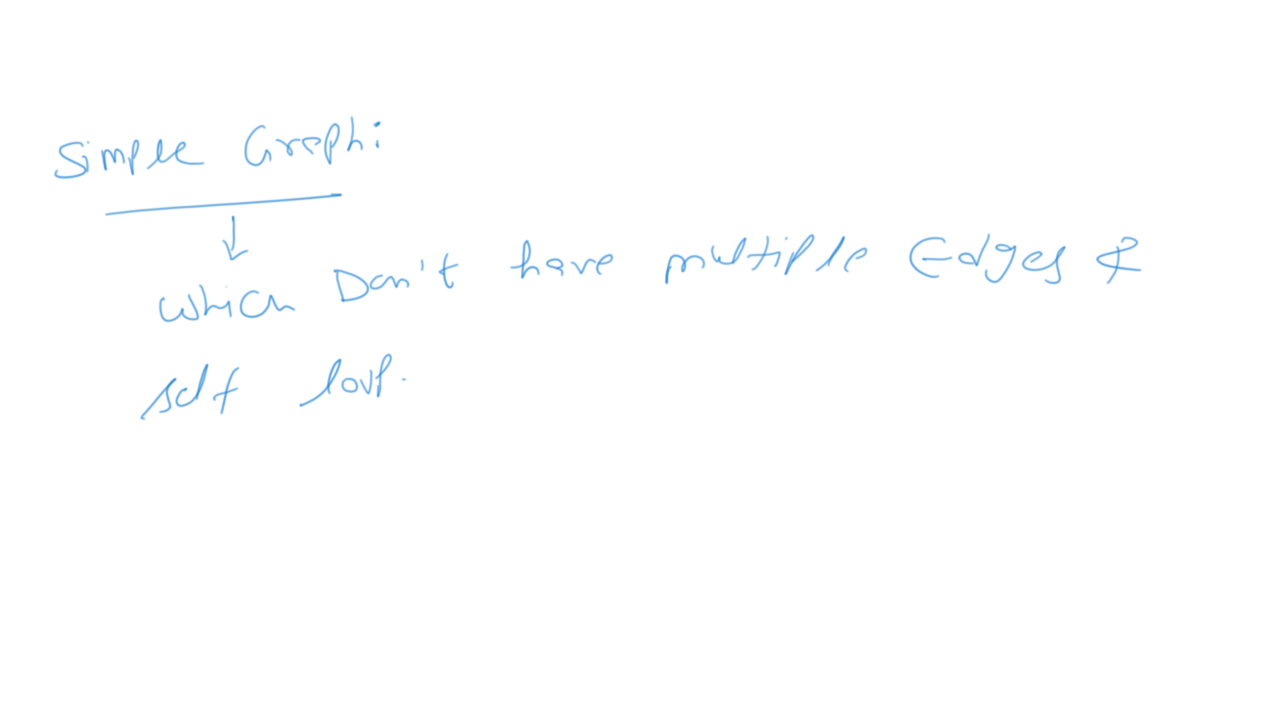 Simple Graph:
which Don't have multiple Edges &
self loop.